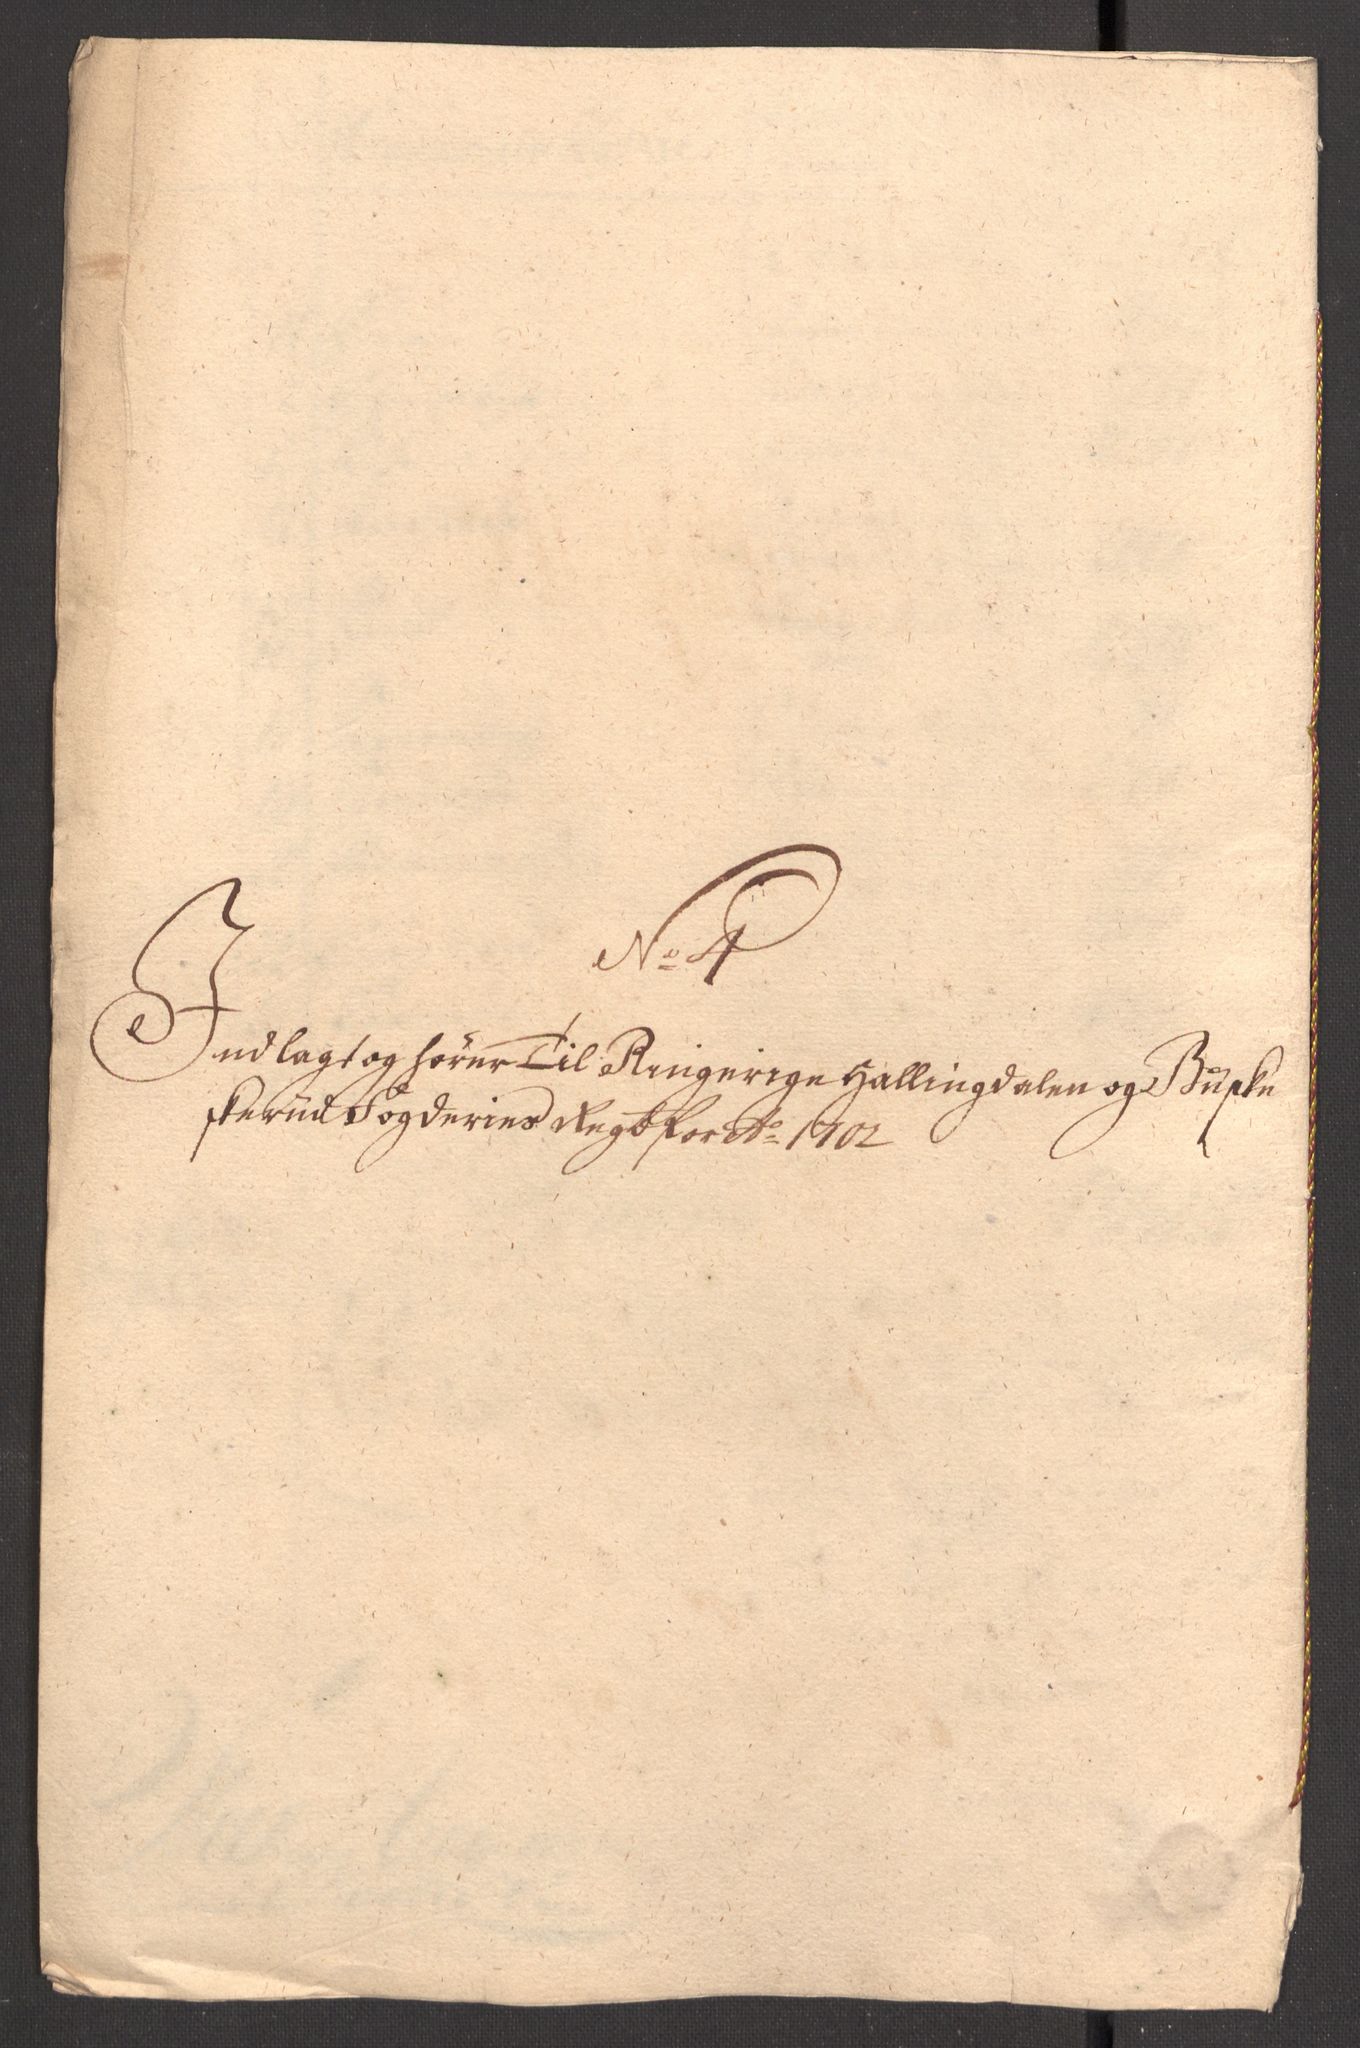 No 4
Indlagt og hører Til Ringerige Hallingdalen og Buske
skerud Fogderies Regb for Ao 1702